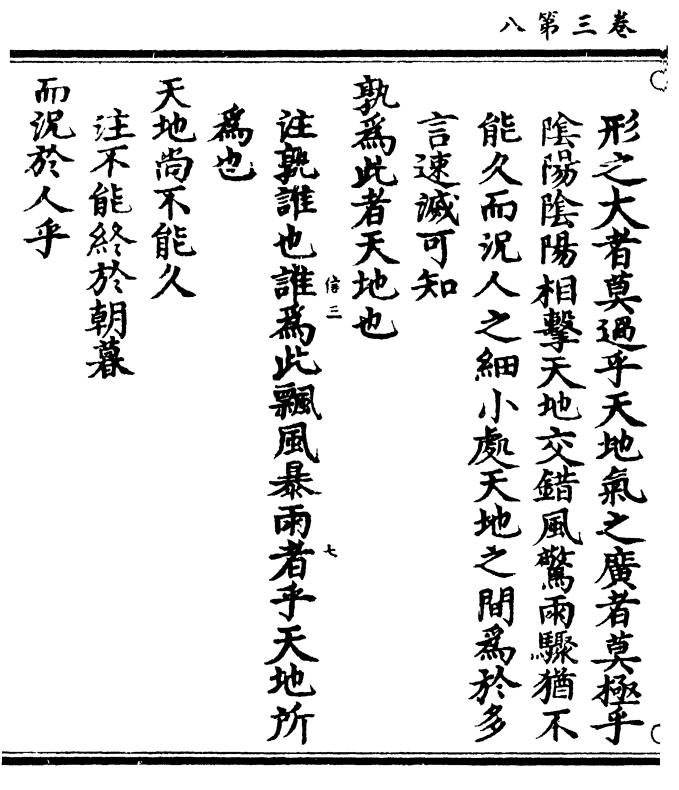 卷三第八
形之大者莫過乎天地氣之廣者莫極乎
陰陽陰陽相擊天地交錯風驚雨驟猶不
能久而況人之細小處天地之間為於多
言速滅可知
孰為此者天地也
註孰誰也誰為此飄風暴雨者乎天地所
信三
七
為也
天地尚不能久
注不能終於朝暮
而況於人乎